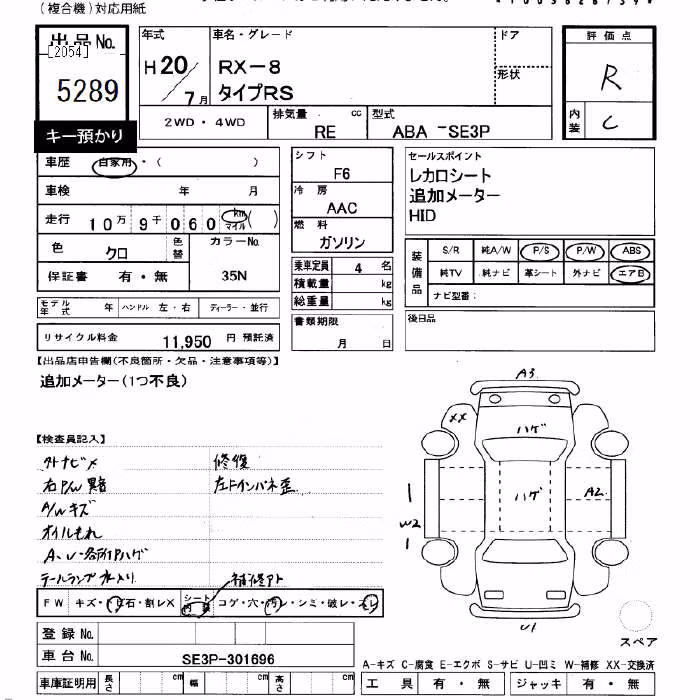 (複合機)対応用紙
出品No.
[2054]
5289
キー預かり
年式
H20/7月
車名・グレード
RX-8
タイプRS
ドア
形状
評価点
R
内装
C
2WD・4WD
排気量 cc
RE
型式
ABA -SE3P
車歴 自家用・( )
車検 年 月
走行 10万9千060 km マイル ( )
色 クロ
色替
カラーNo.
35N
保証書 有・無
モデル年式 年
ハンドル 左・右
ディーラー・並行
リサイクル料金 11,950 円 預託済
シフト
F6
冷房
AAC
燃料
ガソリン
乗車定員 4 名
積載量 kg
総重量 kg
書類期限
月 日
セールスポイント
レカロシート
追加メーター
HID
装備品
S/R 純A/W P/S P/W ABS
純TV 純ナビ 革シート 外ナビ エアB
ナビ型番:
後日品
【出品店申告欄(不良箇所・欠品・注意事項等)】
追加メーター(1つ不良)
【検査員記入】
外ナビメ
右P/W異音
A/Wキズ
オイルもれ
A、U・各所Pハゲ
テールランプ水入り
修復
左ドインパネ歪
補修アト
FW キズ・飛石・割レX
シート 内装 コゲ・穴・汚レ・シミ・破レ・スレ
登録No.
車台No. SE3P-301696
車庫証明用 長さ cm 幅 cm 高さ cm
A3
XX
ハゲ
ハゲ
A2
1
W2
1
U1
スペア
A-キズ C-腐食 E-エクボ S-サビ U-凹ミ W-補修 XX-交換済
工具 有・無 ジャッキ 有・無